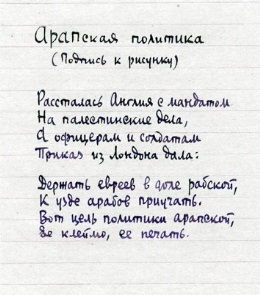 Арапская политика
(Подпись к рисунку)
Рассталась Англия с мандатом
На палестинские дела,
А офицерам и солдатам
Приказ из Лондона дала:
Держать евреев в доле рабской,
К узде арабов приучать.
Вот цель политики арапской,
Ее клеймо, ее печать.